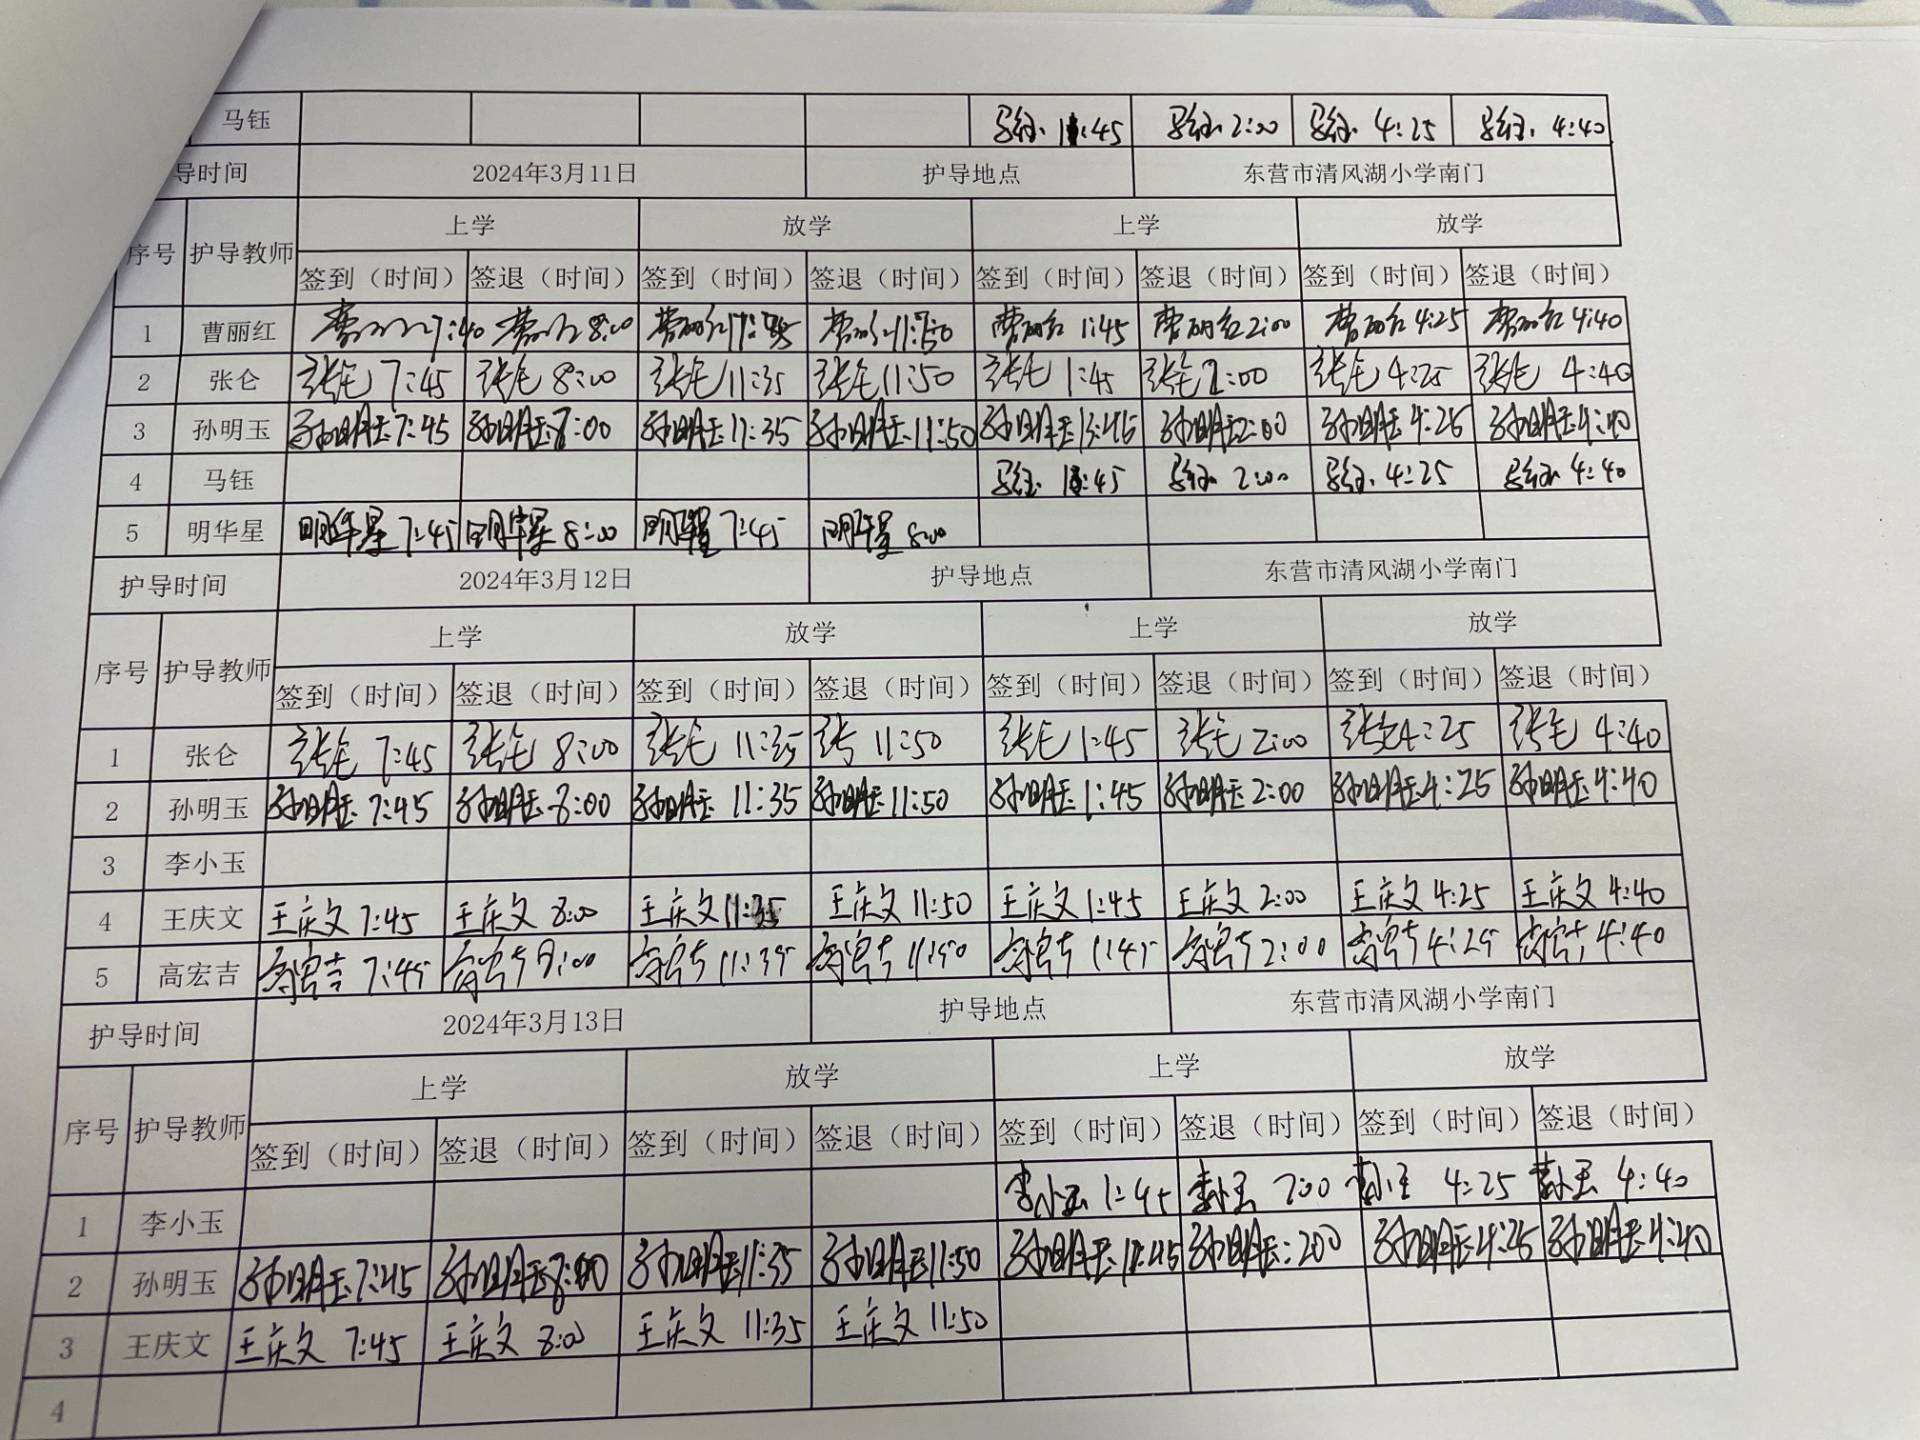 马钰 马钰 1:45 马钰 2:00 马钰 4:25 马钰 4:40
导时间 2024年3月11日 护导地点 东营市清风湖小学南门
序号 护导教师 上学 放学 上学 放学
签到（时间） 签退（时间） 签到（时间） 签退（时间） 签到（时间） 签退（时间） 签到（时间） 签退（时间）
1 曹丽红 曹丽红 7:40 曹丽红 8:00 曹丽红 曹丽红 11:50 曹丽红 1:45 曹丽红 2:00 曹丽红 4:25 曹丽红 4:40
2 张仑 张仑 7:45 张仑 8:00 张仑 11:35 张仑 11:50 张仑 1:45 张仑 2:00 张仑 4:25 张仑 4:40
3 孙明玉 孙明玉 7:45 孙明玉 8:00 孙明玉 11:35 孙明玉 11:50 孙明玉 1:45 孙明玉 2:00 孙明玉 4:25 孙明玉 4:40
4 马钰 马钰 1:45 马钰 2:00 马钰 4:25 马钰 4:40
5 明华星 明华星 7:45 明华星 8:00 明华星 7:45 明华星 8:00
护导时间 2024年3月12日 护导地点 东营市清风湖小学南门
序号 护导教师 上学 放学 上学 放学
签到（时间） 签退（时间） 签到（时间） 签退（时间） 签到（时间） 签退（时间） 签到（时间） 签退（时间）
1 张仑 张仑 7:45 张仑 8:00 张仑 11:35 张 11:50 张仑 1:45 张仑 2:00 张仑 4:25 张仑 4:40
2 孙明玉 孙明玉 7:45 孙明玉 8:00 孙明玉 11:35 孙明玉 11:50 孙明玉 1:45 孙明玉 2:00 孙明玉 4:25 孙明玉 4:40
3 李小玉
4 王庆文 王庆文 7:45 王庆文 8:00 王庆文 11:35 王庆文 11:50 王庆文 1:45 王庆文 2:00 王庆文 4:25 王庆文 4:40
5 高宏吉 高宏吉 7:45 高宏吉 8:00 高宏吉 11:35 高宏吉 11:50 高宏吉 1:45 高宏吉 2:00 高宏吉 4:25 高宏吉 4:40
护导时间 2024年3月13日 护导地点 东营市清风湖小学南门
序号 护导教师 上学 放学 上学 放学
签到（时间） 签退（时间） 签到（时间） 签退（时间） 签到（时间） 签退（时间） 签到（时间） 签退（时间）
1 李小玉 李小玉 1:45 李小玉 2:00 李小玉 4:25 李小玉 4:40
2 孙明玉 孙明玉 7:45 孙明玉 8:00 孙明玉 11:35 孙明玉 11:50 孙明玉 1:45 孙明玉:200 孙明玉 4:25 孙明玉 4:40
3 王庆文 王庆文 7:45 王庆文 8:00 王庆文 11:35 王庆文 11:50
4